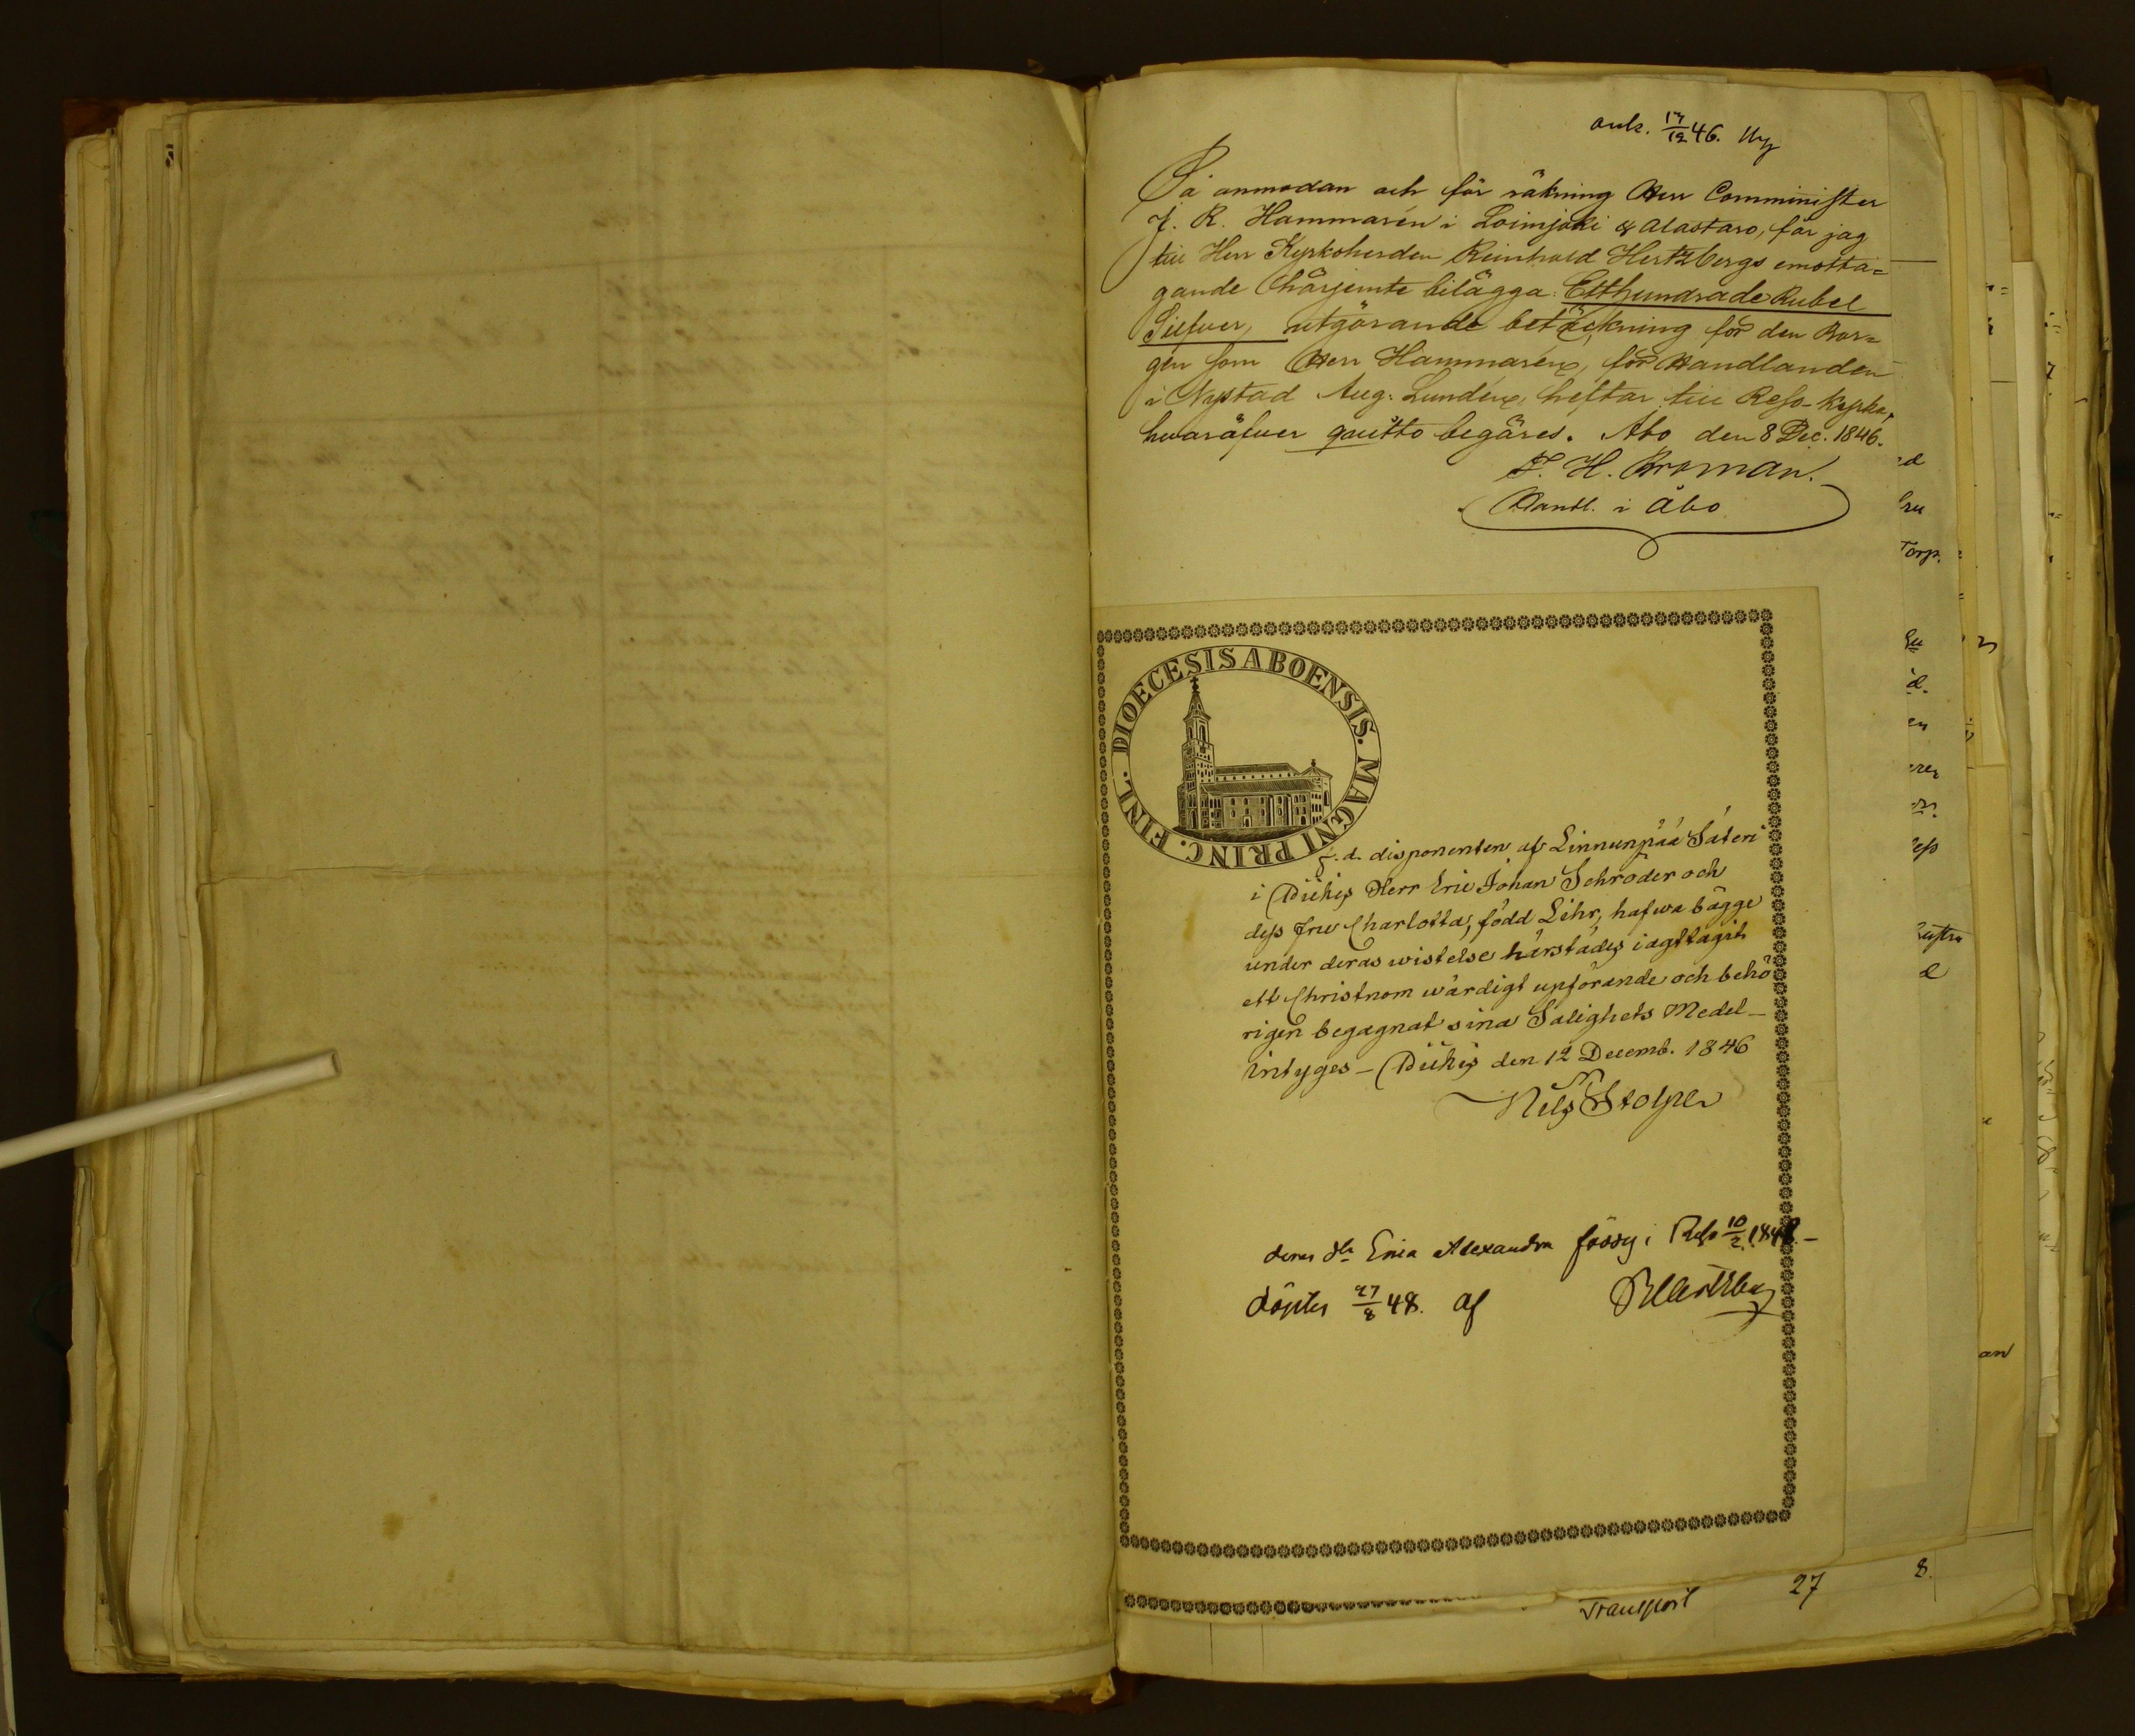 ank. 17/12 46.
På anmodan och för räkning Herr Comminister
J. R. Hammarén i Loimjoki & Alastaro, får jag
till Herr Kyrkoherden Reinhold Hertzbergs emotta=
gande härjemte bilägga: Etthundrade Rubel
Silfver, utgörande betäckning för den Bor=
gen som Herr Hammarén, för Handlanden
i Nystad Aug. Lundén, heftar till Reso Kyrka,
hvaröfver quitto begäres. Åbo den 8 Dec. 1846.
F. H. Broman.
Handl. i Åbo
DIOECESIS ABOENSIS. MAGNI PRINC. FINL.
F. d. disponenten af Linnunpää Säteri
i Piikis Herr Eric Johan Schröder och
dess fru Charlotta, född Lihr, hafwa bägge
under deras wistelse härstädes iagttagit
ett Christnom wärdigt upförande och behö
rigen begagnat sina Salighets Medel
intyges – Piikis den 12 Decemb. 1846
Nils Stolpe
deras dr Erica Alexandra född i Reso 10/2 1848.
döptes 27/8 48. af RHertzberg
Transport 27 8.